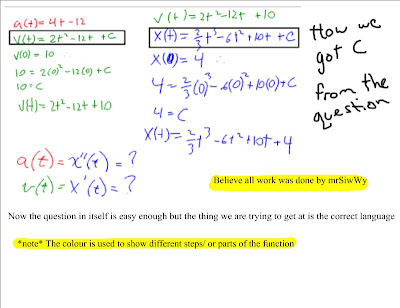 a(t) = 4t - 12
v(t) = 2t² - 12t + C
v(0) = 10
10 = 2(0)² - 12(0) + C
10 = C
v(t) = 2t² - 12t + 10
v(t) = 2t² - 12t + 10
x(t) = 2/3 t³ - 6t² + 10t + C
x(0) = 4
4 = 2/3 (0)³ - 6(0)² + 10(0) + C
4 = C
x(t) = 2/3 t³ - 6t² + 10t + 4
How we
got C
from the
question
a(t) = x''(t) = ?
v(t) = x'(t) = ?
Believe all work was done by mrSiwWy
Now the question in itself is easy enough but the thing we are trying to get at is the correct language
*note* The colour is used to show different steps/ or parts of the function